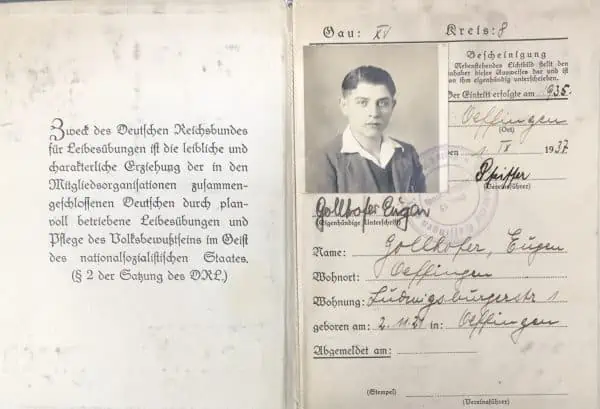 Zweck des Deutschen Reichsbundes
für Leibesübungen ist die leibliche und
charakterliche Erziehung der in den
Mitgliedsorganisationen zusammen-
geschlossenen Deutschen durch plan-
voll betriebene Leibesübungen und
Pflege des Volksbewußtseins im Geist
des nationalsozialistischen Staates.
(§ 2 der Satzung des DRL.)
Gau: XV Kreis: 8
Bescheinigung
Nebenstehendes Lichtbild stellt den
Inhaber dieses Ausweises dar und ist
von ihm eigenhändig unterschrieben.
Der Eintritt erfolgte am 935.
Oeffingen
(Ort)
den 1. IX 1937
Pfeiffer
(Vereinsführer)
Gollhofer Eugen
(Eigenhändige Unterschrift)
Name: Gollhofer, Eugen
Wohnort: Oeffingen
Wohnung: Ludwigsburgerstr 1
geboren am: 2. 11. 21 in: Oeffingen
Abgemeldet am:
(Stempel)
(Vereinsführer)